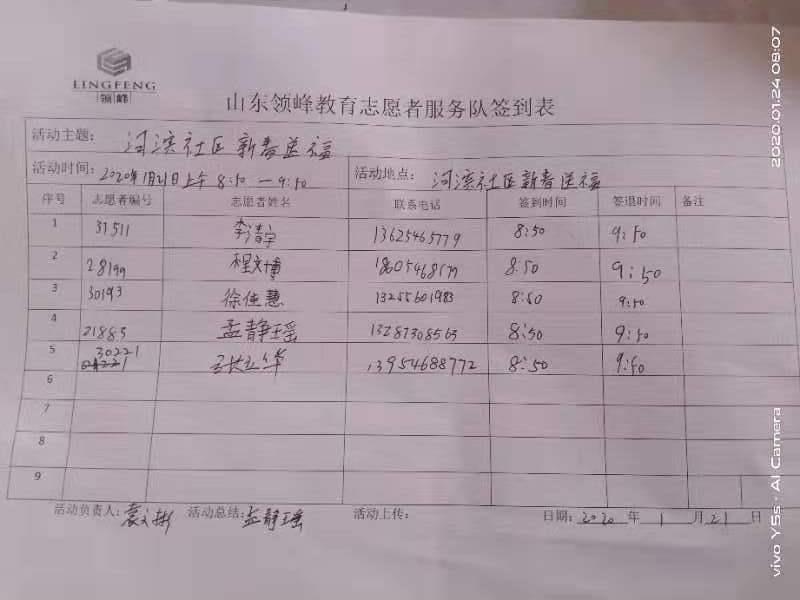 LINGFENG
领峰
山东领峰教育志愿者服务队签到表
活动主题: 河滨社区新春送福
活动时间: 2020年1月21日上午8:50—9:50 活动地点: 河滨社区新春送福
序号 志愿者编号 志愿者姓名 联系电话 签到时间 签退时间 备注
1 37511 李清宇 13625465779 8:50 9:50
2 28199 程文博 8:50 9:50
3 30193 徐佳慧 13255601983 8:50 9:50
4 21883 孟静瑶 13287308563 8:50 9:50
5 30221 13954688772 8:50 9:50
6
7
8
9
活动负责人: 袁文彬 活动总结: 孟静瑶 活动上传: 日期: 2020 年 1 月 21 日
2020.01.24 09:07
vivo Y5s · AI Camera